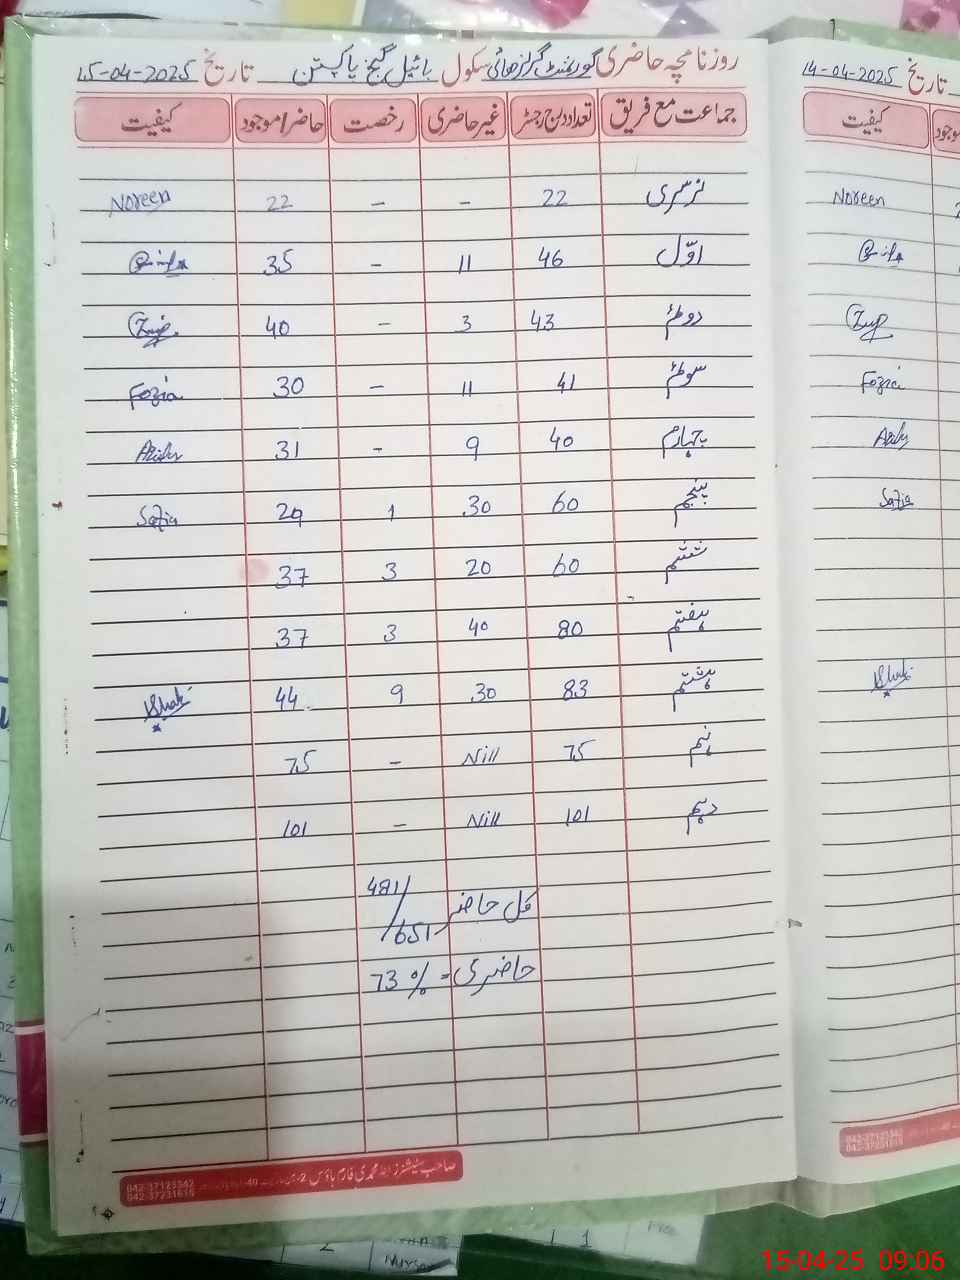 روزنامچہ حاضری گورنمنٹ گرلز ہائی سکول بائیل گنج پاکپتن تاریخ 15-04-2025
جماعت مع فریق تعداد درج رجسٹر غیر حاضری رخصت حاضر/موجود کیفیت
نرسری 22 - - 22 Noreen
اوّل 46 11 - 35
دوئم 43 3 - 40
سوئم 41 11 - 30 Fozia
چہارم 40 9 - 31
پنجم 60 30 1 29 Safia
ششم 60 20 3 37
ہفتم 80 40 3 37
ہشتم 83 30 9 44
نہم 75 Nill - 75
دہم 101 Nill - 101
کل حاضر 481/651
حاضری = 73 %
042-37123342
042-37231615
تاریخ 14-04-2025
موجود کیفیت
Noreen
Fozia
Safia
042-37123342
042-37231615
15-04-25 09:06